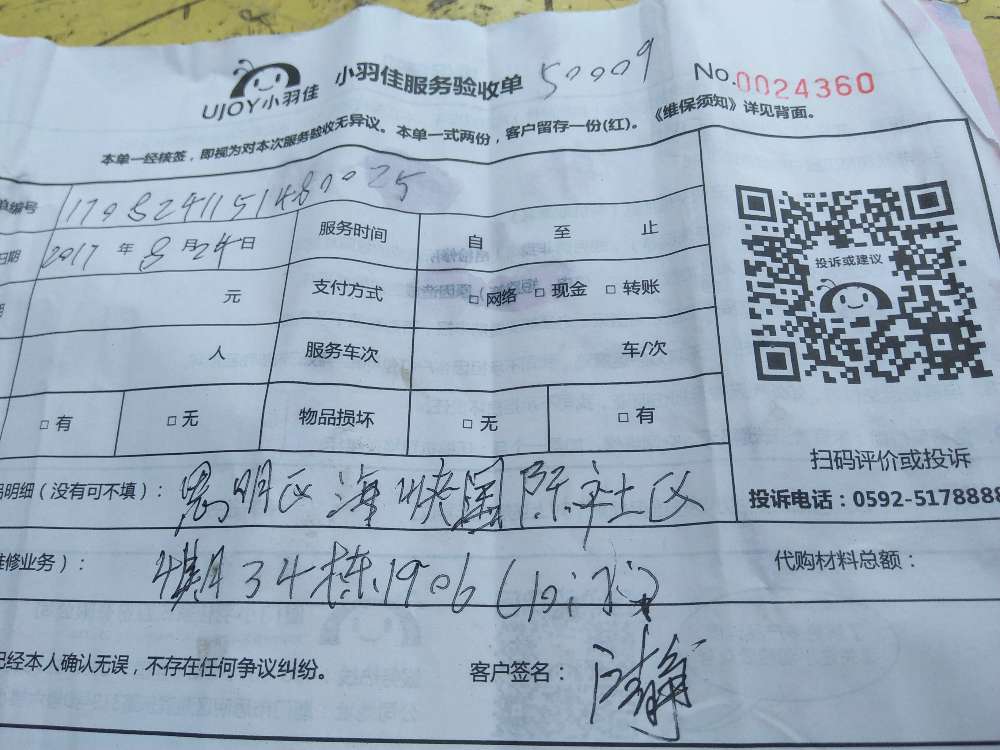 UJOY小羽佳 小羽佳服务验收单 50009 No.0024360
本单一经核签，即视为对本次服务验收无异议。本单一式两份，客户留存一份(红)。《维保须知》详见背面。
单编号 1708241151480025
日期 2017 年 8 月 24 日 服务时间 自 至 止
元 支付方式 □ 网络 □ 现金 □ 转账
人 服务车次 车/次
□ 有 □ 无 物品损坏 □ 无 □ 有
投诉或建议
扫码评价或投诉
投诉电话：0592-5178888
明细（没有可不填）： 思明区海峡国际社区
维修业务）： 4期34栋1906 代购材料总额：
已经本人确认无误，不存在任何争议纠纷。 客户签名：